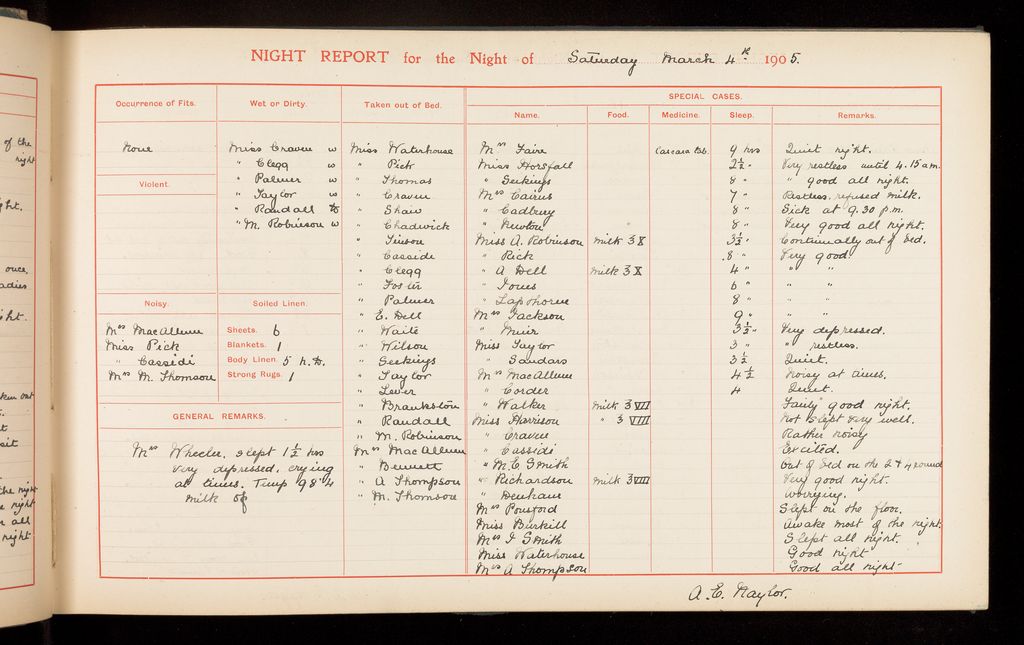 NIGHT REPORT for the Night of Saturday March 4th 1905.
Occurrence of Fits.
None
Violent.
Noisy.
Mrs MacAllum
Miss Pick
" Cassidi
Mrs M. Thomson
Wet or Dirty.
Miss Craven w
" Clegg w
" Palmer w
" Taylor w
" Randall
" M. Robinson w
Soiled Linen.
Sheets. 6
Blankets. 1
Body Linen. 5
Strong Rugs. 1
GENERAL REMARKS.
Mrs Wheeler, slept 1½ hrs
very depressed, crying
at times. Temp 98.4
milk
Taken out of Bed.
Miss Waterhouse
" Pick
" Thomas
" Craven
" Shaw
" Chadwick
" Tinson
" Casside
" Clegg
" Foster
" Palmer
" E. Dell
" Waite
" Wilson
" Geekings
" Taylor
" Lever
" Brankston
" Randall
" M. Robinson
Mrs MacAllum
" Bennett
" A Thompson
" M. Thomson
SPECIAL CASES.
Name. Food. Medicine. Sleep. Remarks.
Mrs Fair Cascara 9 hrs Quiet night.
Miss Horsfall 2½ " Very restless until 4.15 am.
" Geekings 8 " " good all night.
Mrs Cairns 7 " Restless, refused milk.
" Cadbury 8 " Sick at 9.30 p.m.
" Newton 8 " Very good all night.
Miss A. Robinson milk ℥ X 3½ " Continually out of bed.
" Pick 8 " Very good
" A Dell milk ℥ X 4 " " "
" Jones 6 " " "
" Lapthorne 8 " " "
Mrs Jackson 9 " " "
" Muir 3½ " Very depressed.
Miss Taylor 3 " " restless.
" Sandars 3½ Quiet.
Mrs MacAllum 4½ Noisy at times.
" Corder 4 Quiet.
" Walker milk ℥ VII Fairly good night.
Miss Harrison " ℥ VIII Not slept very well.
" Craven Rather noisy
" Cassidi Excited.
" M. E Smith Out of bed on the 2 & 4 round
" Richardson milk ℥ VIII Very good night.
" Denham Worrying.
Mrs Ponsford Slept on the floor.
Miss Burkill Awake most of the night.
Mrs I Smith Slept all night.
Miss Waterhouse Good night
Mrs A Thompson Good all night
A. E. Naylor.
of the
night
ght.
once,
ladies
ght.
taken out
t
sit
the night
night
all
night